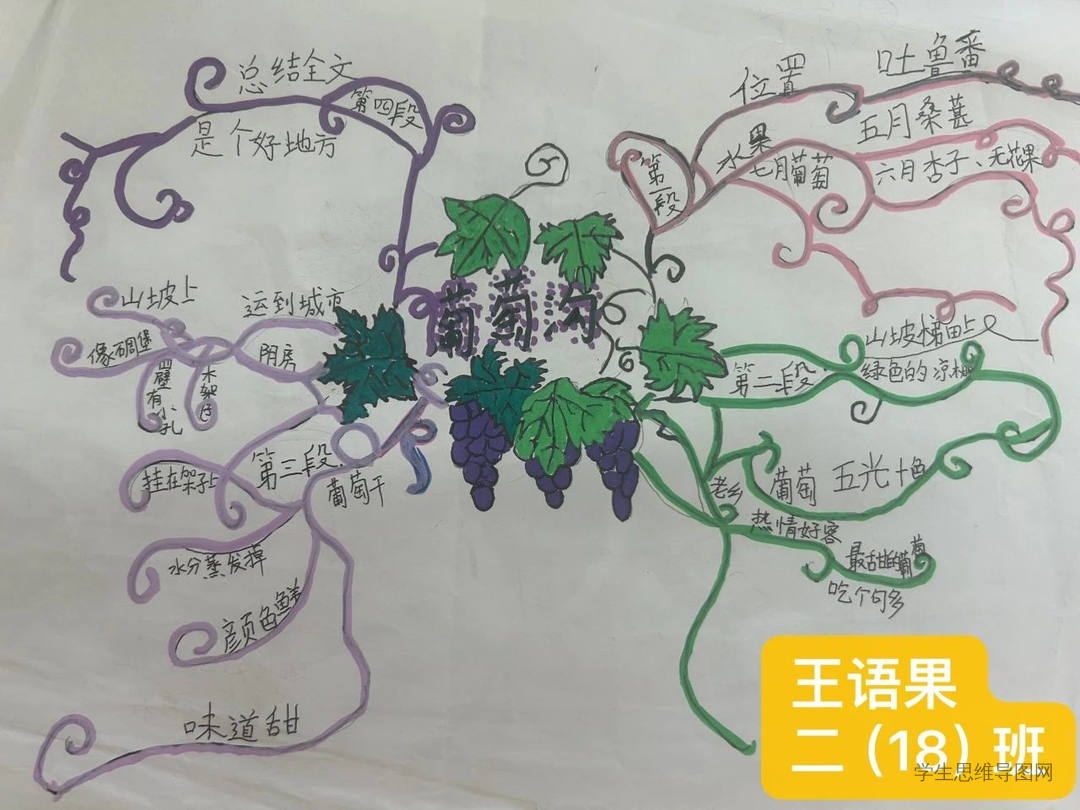 葡萄沟
第一段
位置
吐鲁番
水果
五月桑葚
六月杏子、无花果
七月葡萄
第二段
山坡梯田上
绿色的凉棚
葡萄
五光十色
老乡
热情好客
最甜的葡萄
吃个句多
第三段
运到城市
阴房
山坡上
像碉堡
四壁有小孔
木架子
葡萄干
挂在架子上
水分蒸发掉
颜色鲜
味道甜
第四段
总结全文
是个好地方
王语果
二（18）班
学生思维导图网